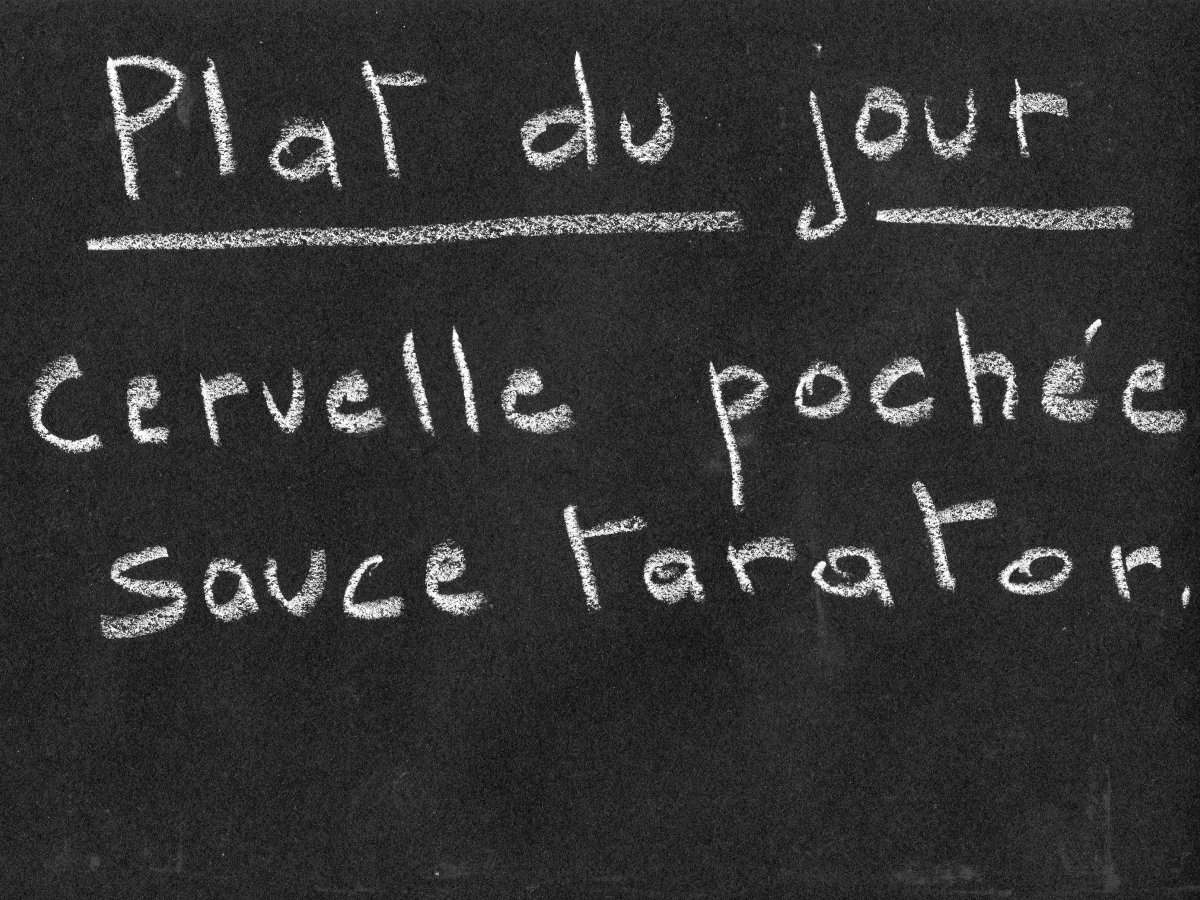 Plat du jour
Cervelle pochée
sauce tarator.